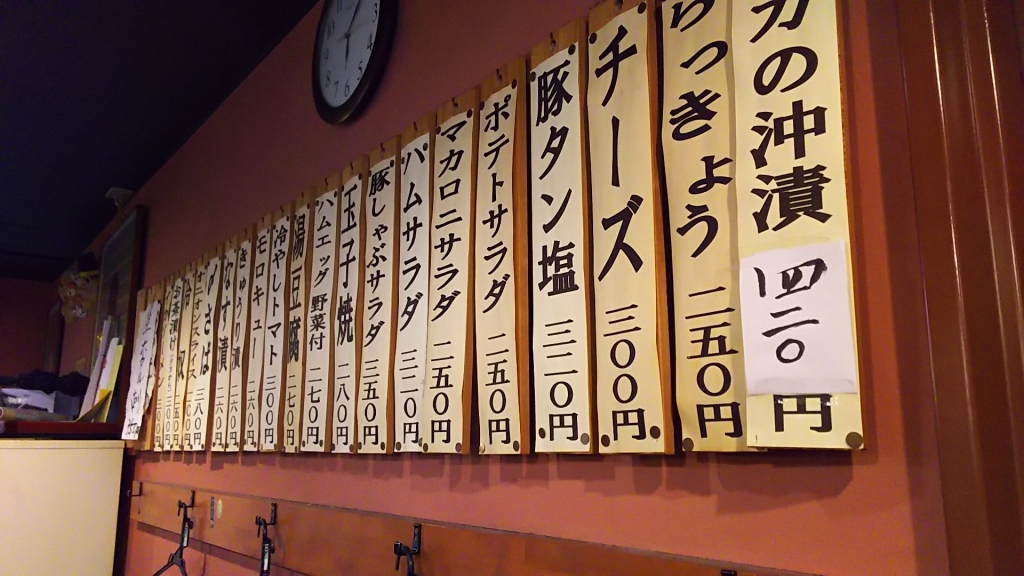 カの沖漬 四二〇円
らっきょう 二五〇円
チーズ 三〇〇円
豚タン塩 三二〇円
ポテトサラダ 二五〇円
マカロニサラダ 二五〇円
ハムサラダ 三二〇円
豚しゃぶサラダ 三五〇円
玉子焼 二八〇円
ハムエッグ 野菜付 二七〇円
湯豆腐 二七〇円
冷やしトマト 三〇〇円
モロキュー 二六〇円
きゅうり漬 二六〇円
なす漬 二六〇円
〆さば 三八〇円